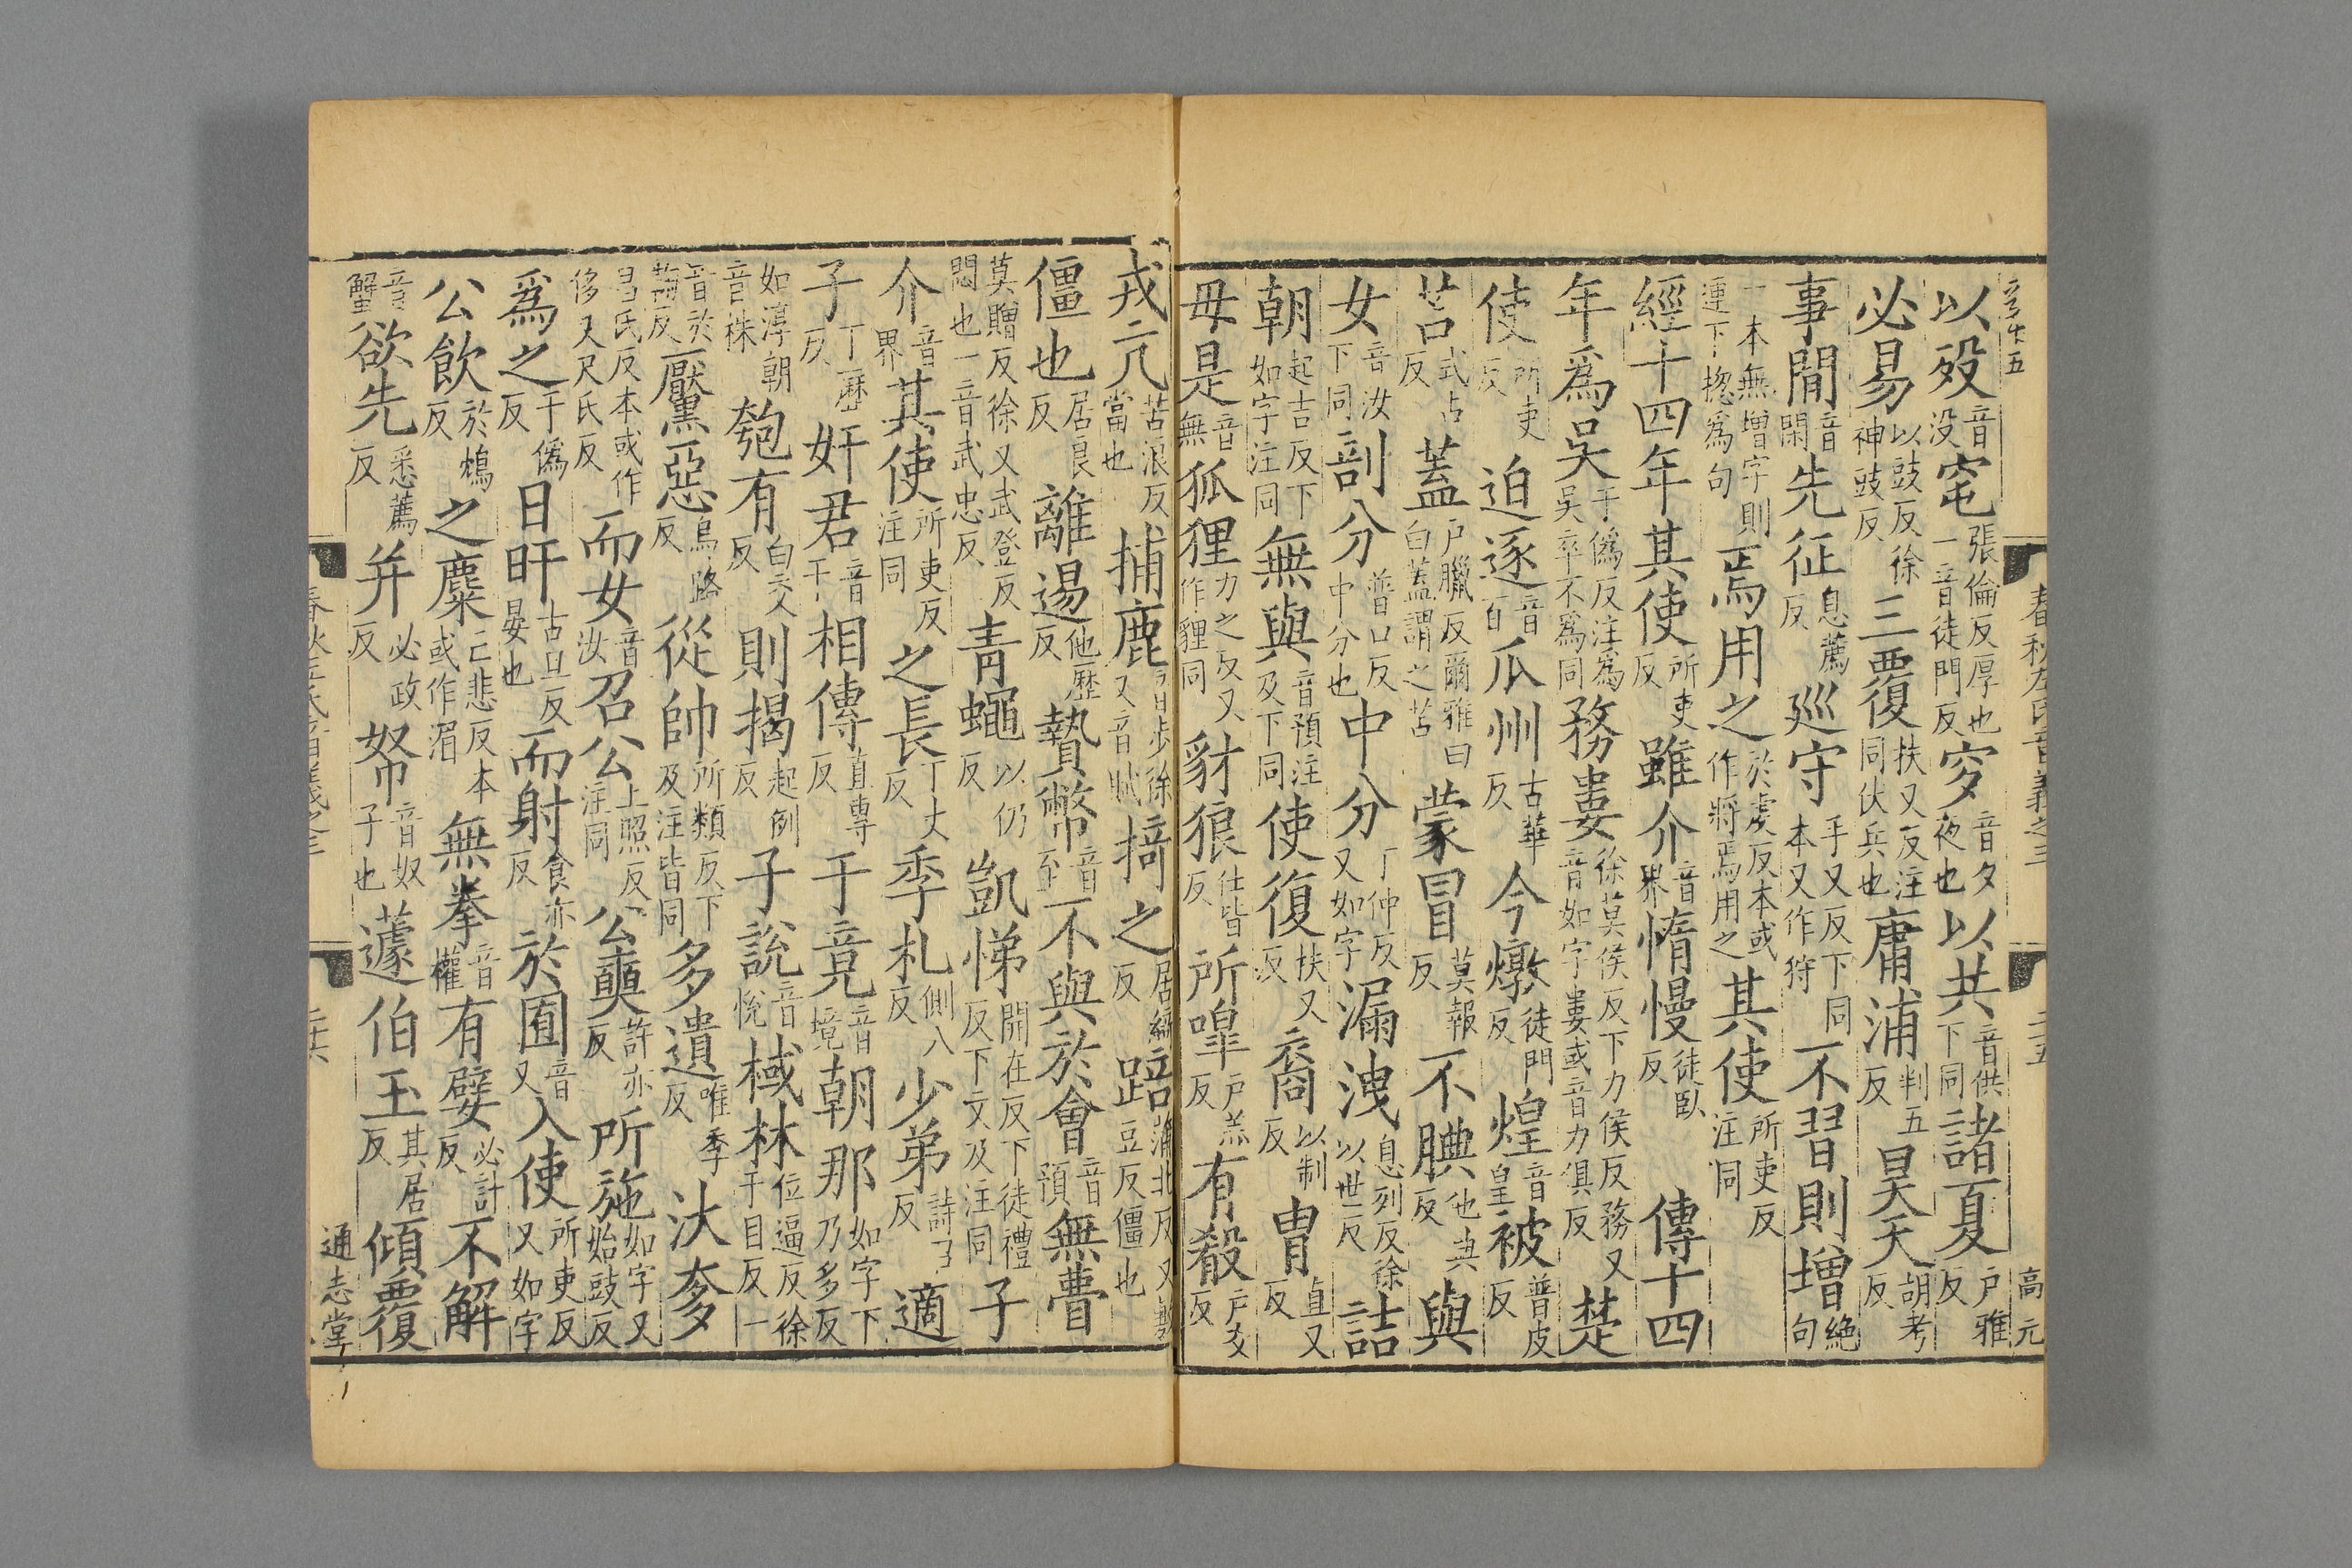 以歿音没窀張倫反厚也一音徒門反穸音夕夜也以共音供下同諸夏户雅反
必易以豉反徐神豉反三覆扶又反注同伏兵也庸浦判五反昊天胡考反
事閒音閑先征息薦反巡守手又反下同本又作狩不習則增絶句
一本無增字則連下揔爲句焉用之於虔反本或作將焉用之其使所吏反注同
經十四年其使所吏反雖介音界惰慢徒臥反傳十四
年爲吳于僞反注爲吳卒不爲同務婁徐莫侯反下力侯反務又音如字婁或音力俱反楚
使所吏反迫逐音百瓜州古華反今燉徒門反煌音皇被普皮反
苫式占反蓋户臘反爾雅曰白蓋謂之苫蒙冒莫報反不腆他典反與
女音汝下同剖分普口反中分也中分丁仲反又如字漏洩息列反徐以世反詰
朝起吉反下如字注同無與音預注及下同使復扶又反裔以制反胄直又反
毋是音無狐狸力之反又作貍同豺狼仕皆反所嘷户羔反有殽户交反
戎亢苦浪反當也捕鹿音步徐又音賦掎之居綺反踣蒲北反又敷豆反僵也
僵也居良反離逷他歷反贄幣音至不與於會音預無瞢
莫贈反徐又武登反悶也一音武忠反青蠅以仍反凱悌開在反下徒禮反下文及注同子
介音界其使所吏反注同之長丁丈反季札側八反少弟詩召反適
子丁歷反奸君音干相傳直專反于竟音境朝那如字下乃多反
如淳朝音株匏有白交反則揭起例反子說音悅棫林位逼反徐于目反一
音於鞫反黶惡烏路反從帥所類反下及注皆同多遺唯季反汰奓
昌氏反本或作侈又尺氏反而女音汝召公上照反注同公奭許亦反所施如字又始豉反
爲之于僞反日旰古旦反晏也而射食亦反於囿音又入使所吏反又如字
公飲於鴆反之麋亡悲反本或作湄無拳音權有嬖必計反不解
音蟹欲先悉薦反并必政反帑音奴子也蘧伯玉其居反傾覆
春秋左氏音義之三
二五
高元
通志堂